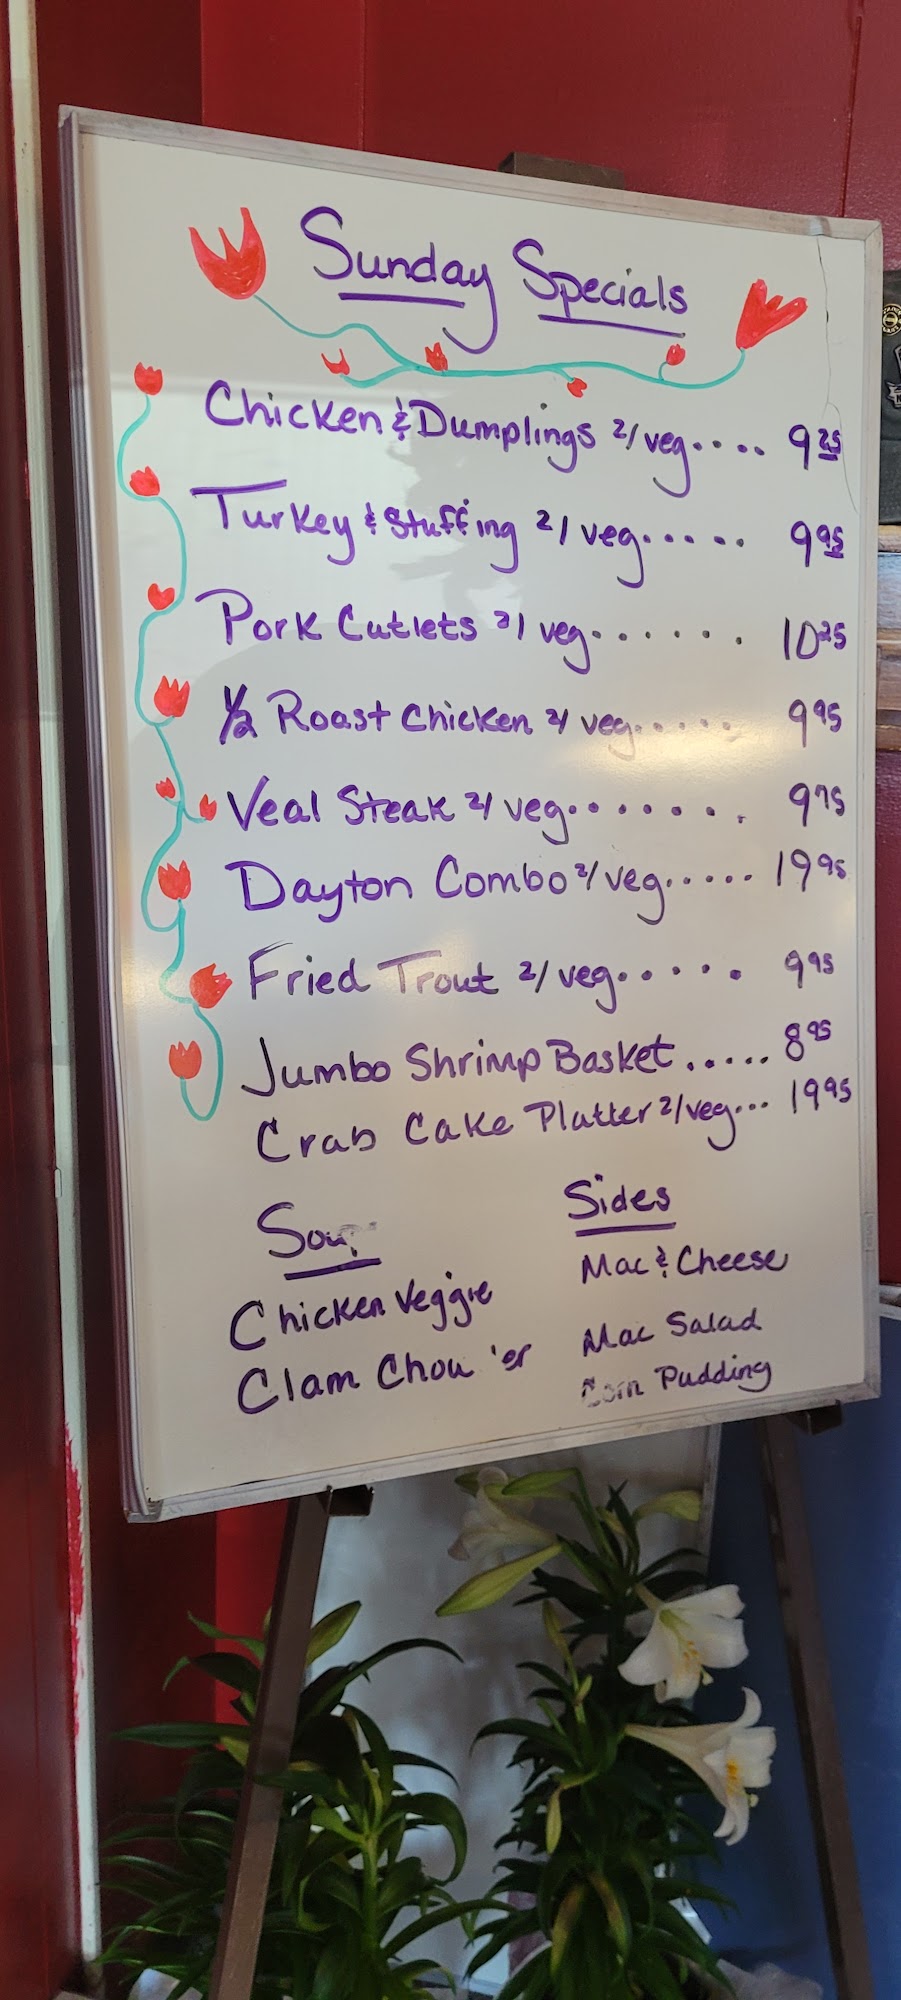 Sunday Specials
Chicken & Dumplings 2/veg.... 9.25
Turkey & Stuffing 2/veg..... 9.95
Pork Cutlets 2/veg...... 10.25
1/2 Roast Chicken 2/veg..... 9.95
Veal Steak 2/veg....... 9.75
Dayton Combo 2/veg..... 19.95
Fried Trout 2/veg..... 9.95
Jumbo Shrimp Basket..... 8.95
Crab Cake Platter 2/veg... 19.95
Soup
Chicken Veggie
Clam Chow'er
Sides
Mac & Cheese
Mac Salad
Corn Pudding